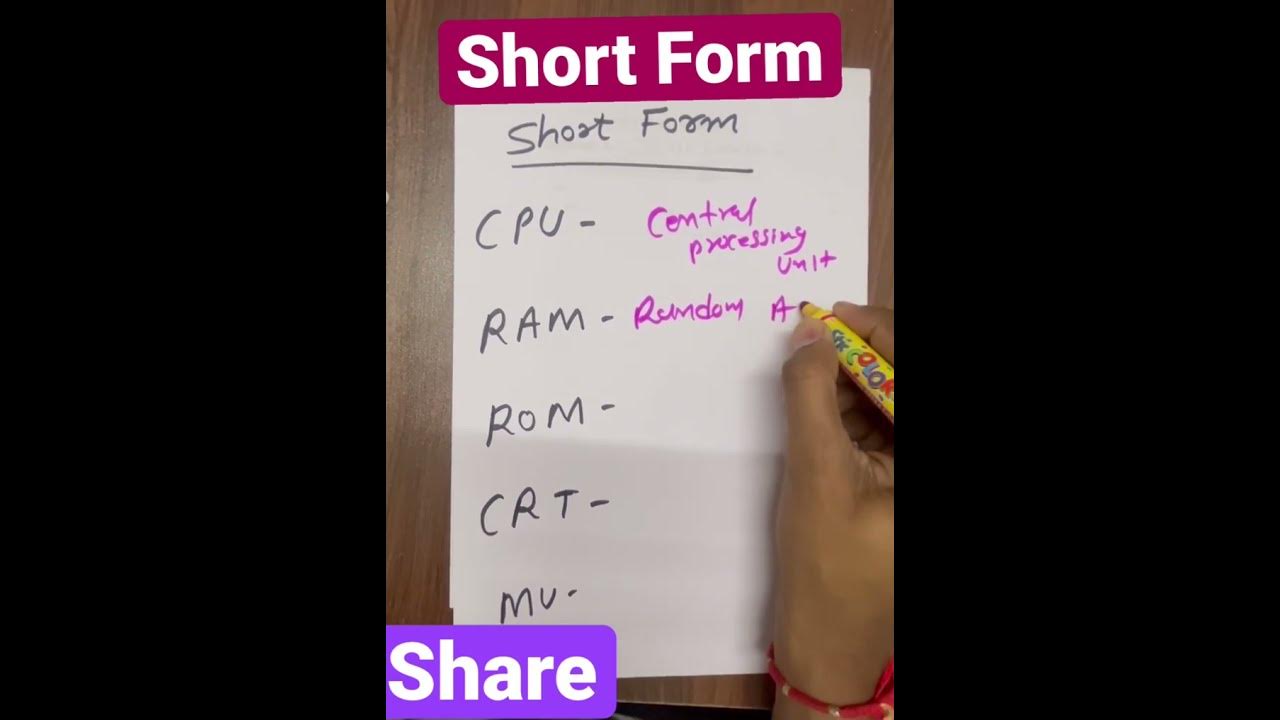 Short Form
Short Form
CPU - Central
processing
Unit
RAM - Random A
ROM -
CRT -
MU -
COLOR
Share